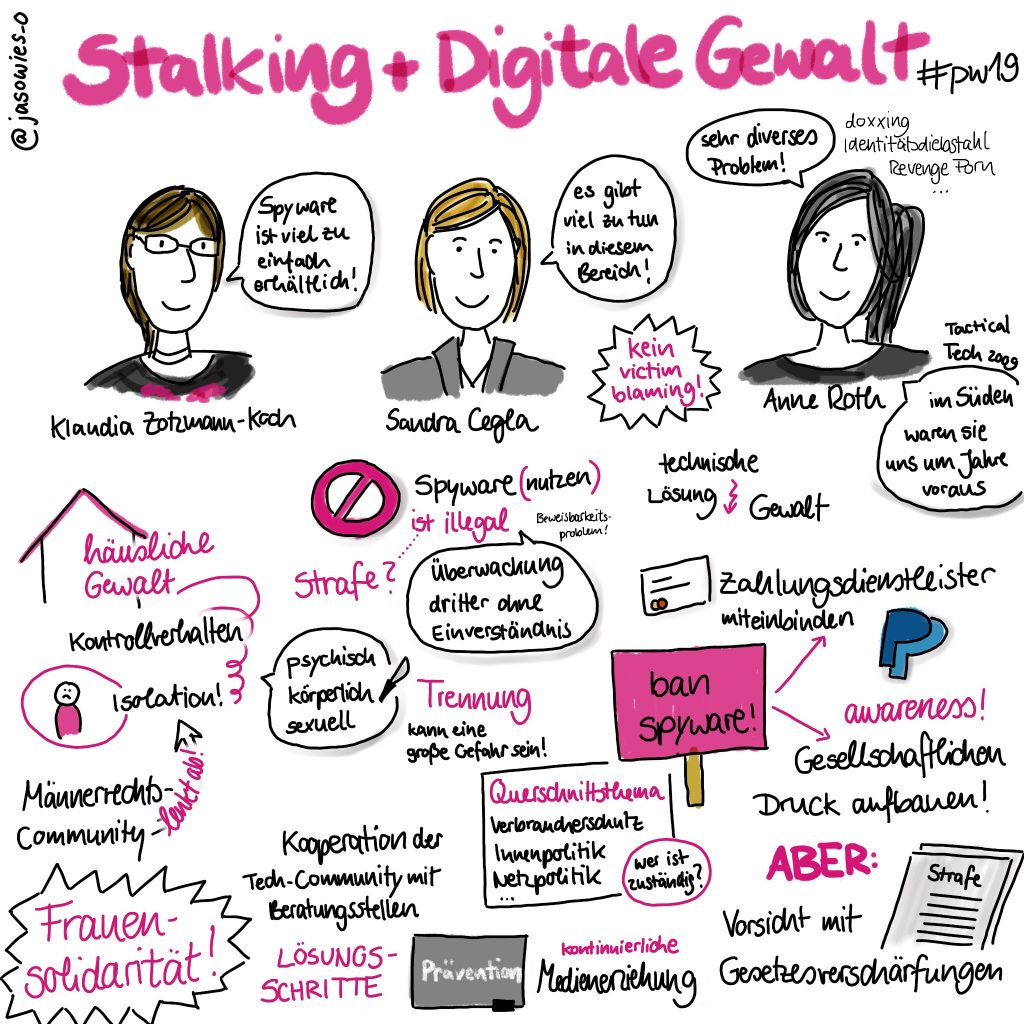 @jasowies_o
Stalking + Digitale Gewalt
#pw19
Spyware
ist viel zu
einfach
erhältlich!
Klaudia Zotzmann-Koch
es gibt
viel zu tun
in diesem
Bereich!
Sandra Cegla
sehr diverses
Problem!
doxxing
Identitätsdiebstahl
Revenge Porn
...
kein
victim
blaming!
Anne Roth
Tactical
Tech 2009
im Süden
waren sie
uns um Jahre
voraus
häusliche
Gewalt
Kontrollverhalten
Isolation!
Männerrechts-
Community
lenkt ab!
Frauen-
solidarität!
Spyware (nutzen)
ist illegal
Beweisbarkeits-
problem!
Strafe?
Überwachung
dritter ohne
Einverständnis
psychisch
körperlich
sexuell
Trennung
kann eine
große Gefahr sein!
technische
Lösung
Gewalt
Zahlungsdienstleister
miteinbinden
ban
spyware!
awareness!
Gesellschaftlichen
Druck aufbauen!
Querschnittsthema
Verbraucherschutz
Innenpolitik
Netzpolitik
...
wer ist
zuständig?
Kooperation der
Tech-Community mit
Beratungsstellen
LÖSUNGS-
SCHRITTE
Prävention
kontinuierliche
Medienerziehung
ABER:
Strafe
Vorsicht mit
Gesetzesverschärfungen